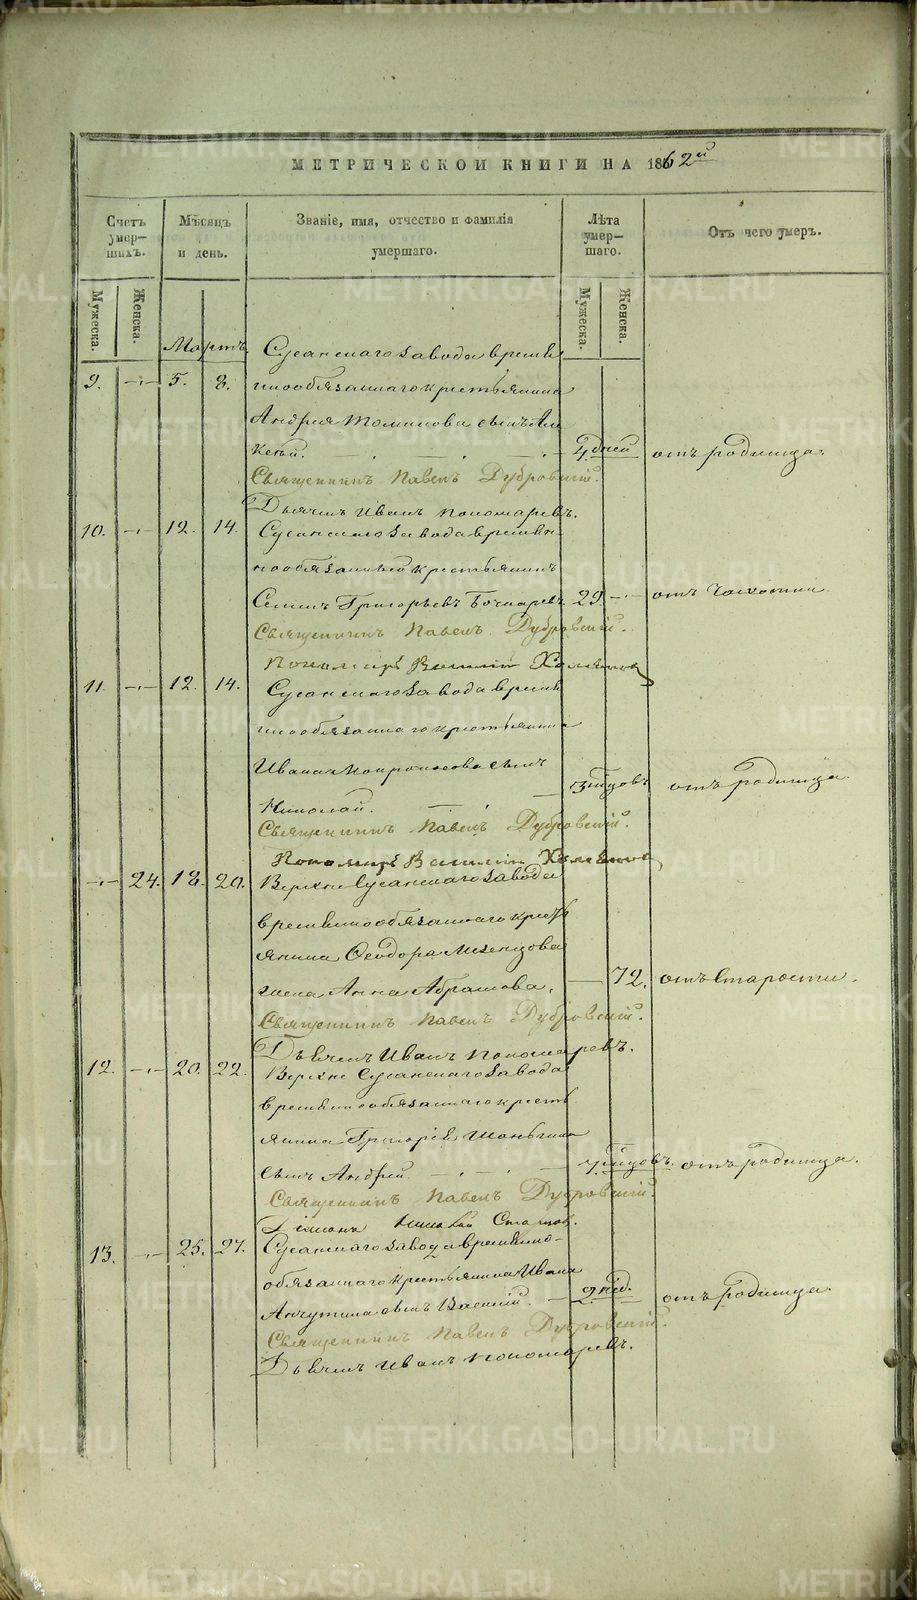 МЕТРИЧЕСКОЙ КНИГИ НА 1862й
Счетъ умер—шихъ.
Мѣсяцъ и день.
Званіе, имя, отчество и фамилія умершаго.
Лѣта умер—шаго.
Отъ чего умеръ.
Мужеска.
Женска.
Мужеска.
Женска.
Мартъ
Сусанскаго завода времен
9. — 5. 8. нообязаннаго крестьянина
Андрея Томилова сынъ Але
ксѣй. 4 дней отъ родимца.
Священникъ Павелъ Дубровскій.
Дьячекъ Иванъ Пономаревъ.
10. — 12. 14. Сусанскаго завода времен
нообязанный крестьянинъ
Семенъ Григорьевъ Бочкаревъ 29. — отъ чахотки
Священникъ Павелъ Дубровскій.
Пономарь Василій
11. — 12. 14. Сусанскаго завода времен
нообязаннаго крестьянина
Ивана сынъ
Николай. 3 годовъ отъ родимца.
Священникъ Павелъ Дубровскій.
Пономарь Василій
— 24. 18. 20. Верхне Сусанскаго завода
временнообязаннаго кресть
янина Ѳеодора Мезенцова
жена Анна Абрамова. — 72. отъ старости.
Священникъ Павелъ Дубровскій.
Дьячекъ Иванъ Пономаревъ.
12. — 20. 22. Верхне Сусанскаго завода
временнообязаннаго кресть
янина Григорія
сынъ Андрей. годовъ. отъ родимца.
Священникъ Павелъ Дубровскій.
Діаконъ Николай
13. — 25. 27. Сусанскаго завода временно-
обязаннаго крестьянина Ивана
Анчутина сынъ Василій. — нед. отъ родимца.
Священникъ Павелъ Дубровскій.
Дьячекъ Иванъ Пономаревъ.
METRIKI.GASO-URAL.RU